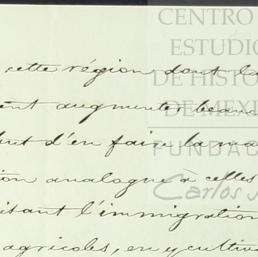 CENTRO
ESTUDIO
DE HISTO
DE MEXI
FUNDAC
Carlos
cette région dont la
augmenter beau
but d'en faire la
analogue à celles
l'immigration
agricoles, en y cultiv